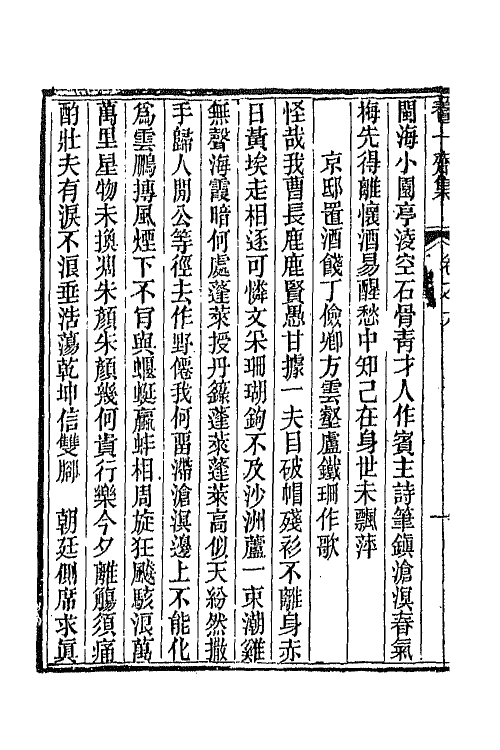 養一齋集
卷十六
閩海小園亭淩空石骨靑才人作賓主詩筆鎭滄溟春氣
梅先得離懷酒易醒愁中知己在身世未飄萍
京邸置酒餞丁儉卿方雲壑盧鐵珊作歌
怪哉我曹長鹿鹿賢愚甘據一夫目破帽殘衫不離身赤
日黃埃走相逐可憐文采珊瑚鉤不及沙洲蘆一束潮雞
無聲海霞暗何處蓬萊授丹籙蓬萊蓬萊高似天紛然撒
手歸人閒公等徑去作野僊我何畱滯滄溟邊上不能化
爲雲鵬摶風煙下不肎與蝘蜓蠃蚌相周旋狂飇駭浪萬
萬里星物未換凋朱顏朱顏幾何貴行樂今夕離觴須痛
酌壯夫有淚不浪垂浩蕩乾坤信雙腳　朝廷側席求眞